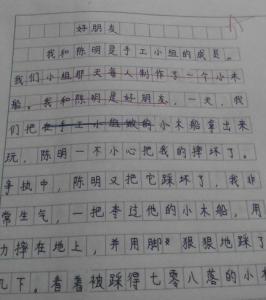 好朋友
我和陈明是手工小组的成员。
我们小组那天每人制作了一个小木
船。我和陈明是好朋友，一天，我
们把在手工小组做的小木船拿出来
玩，陈明一不小心把我的摔坏了。
争执中，陈明又把它踩坏了，我非
常生气，一把夺过他的小木船，用
力摔在地上，并用脚狠狠地踩了
几下。看着被踩得七零八落的小木